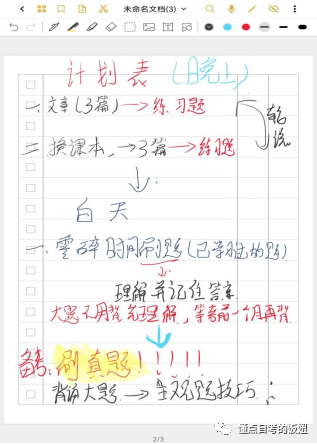 未命名文档(3)
计划表（晚上）
一、文章(3篇)→练习题
轮流
二、换课本，→3篇→练习题
白天
一、零碎时间刷题(已学过的题)
理解并记住答案
大题不用背先理解，等考前一个月再背
备考:刷真题！！！！！
背诵大题→主观题技巧
懂点自考的饭妞
2/3